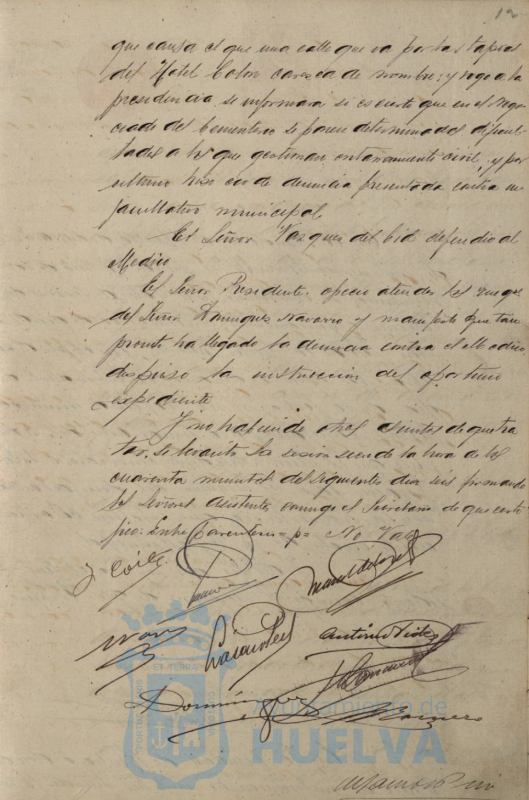 12
que causa el que una calle que va por las tapias
del Hotel Colon carezca de nombre; y rogo a la
presidencia se informara si es cierto que en el nego-
ciado del Cementerio se ponen determinadas dificul-
tades a los que gestionan enterramiento civil, y por
ultimo hizo cargo de denuncia presentada contra un
facultativo municipal.
El Señor Vazquez del Cid defendio al
Medico
El Señor Presidente ofrecio atender los ruegos
del Señor Dominguez Navarro y manifesto que tan
pronto ha llegado la denuncia contra el Medico
dispuso la instruccion del oportuno
expediente
Y no habiendo otros asuntos de que tra-
tar, se levanto la sesion siendo la hora de los
cuarenta minutos del siguiente dia seis firmando
los Señores asistentes conmigo el Secretario de que certi-
fico. Entre Parentesis = p = No Vale
Antonio
Dominguez
ET TERRAE
PORTUS MARIS
CUSTODIA
Ayuntamiento de
HUELVA